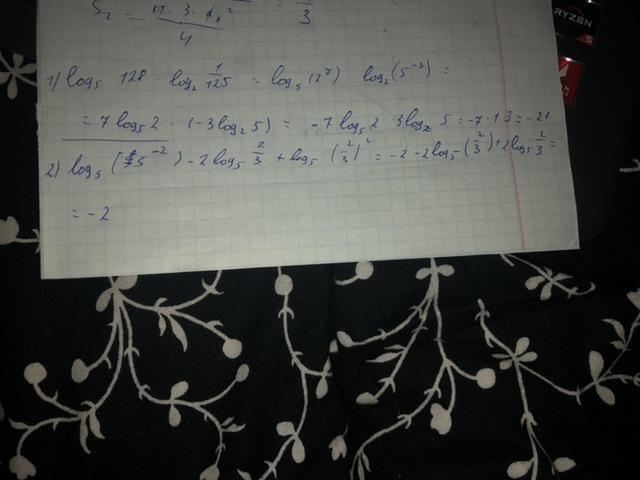 = 3
4
1) log₅ 128 · log₂ 1/125 = log₅(2⁷) log₂(5⁻³) =
= 7 log₅ 2 · (-3 log₂ 5) = -7 log₅ 2 3 log₂ 5 = -7·1 3 = -21
2) log₅ ( 5⁻²) - 2 log₅ 2/3 + log₅ (2/3)² = -2 - 2 log₅ (2/3) + 2 log₅ 2/3 =
= -2
RYZEN
5